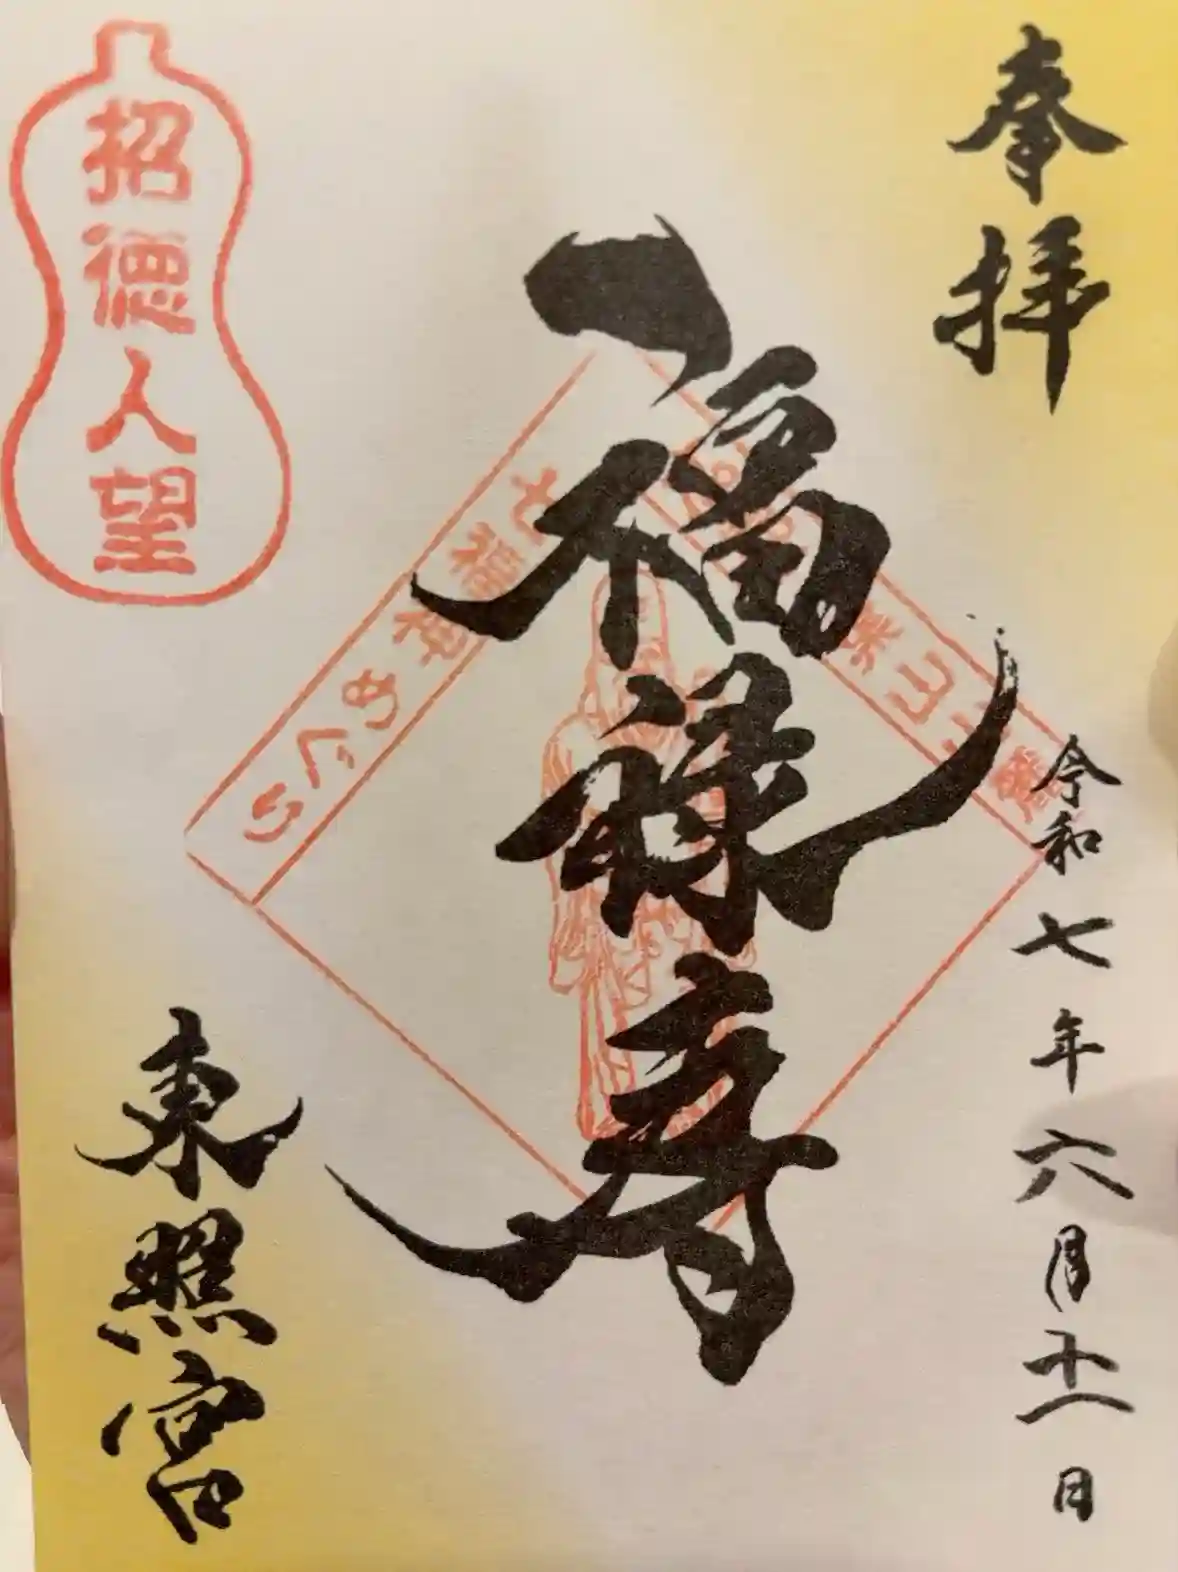 奉拝
令和七年六月十一日
福禄寿
七福神めぐり
招徳人望
東照宮